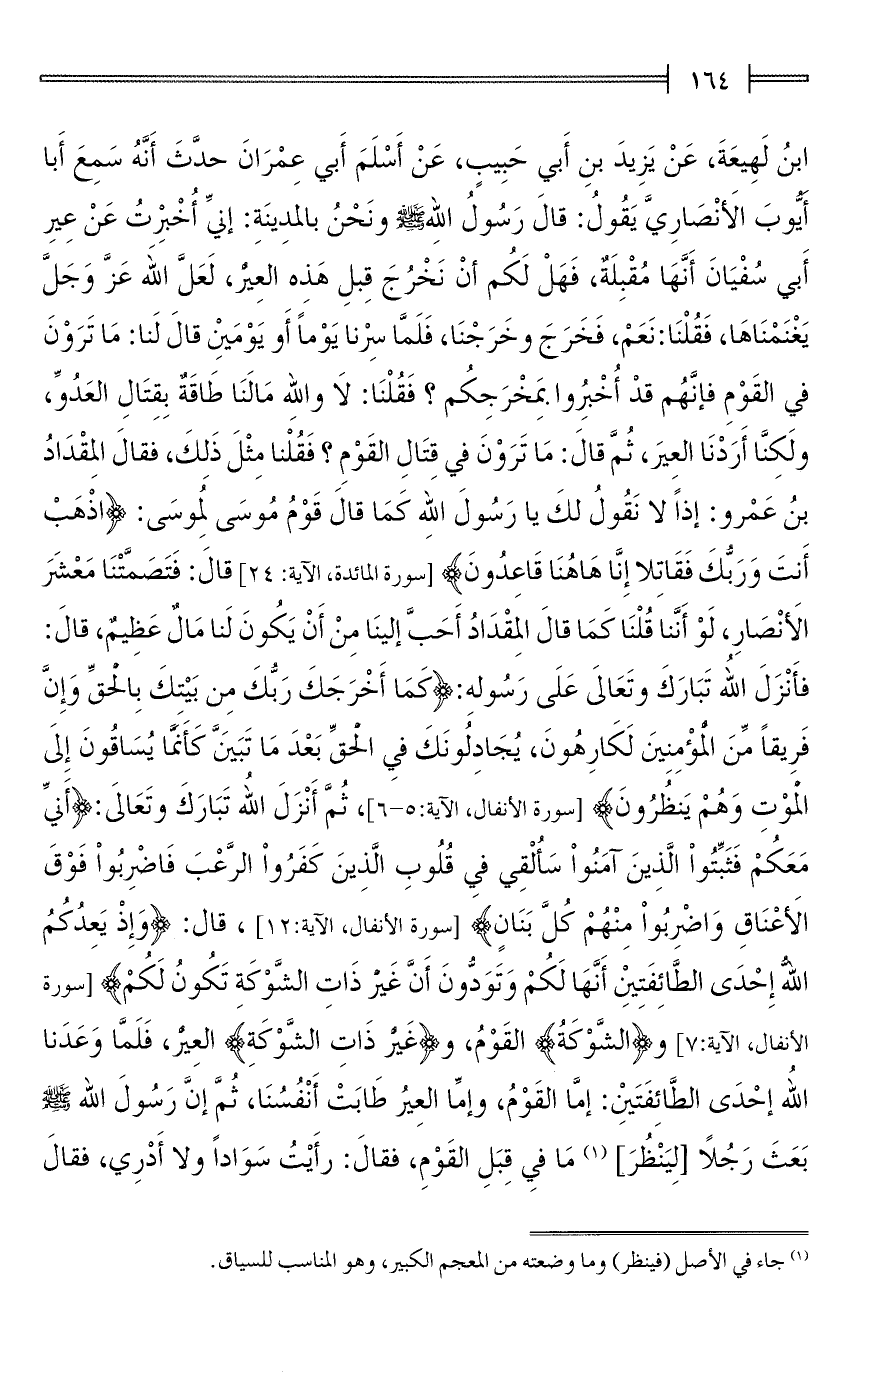 ١٦٤
ابنُ لَهِيعَةَ، عَنْ يَزِيدَ بنِ أَبي حَبِيبٍ، عَنْ أَسْلَمَ أَبي عِمْرَانَ حدَّثَ أَنَّهُ سَمِعَ أَبا
أَيُّوبَ الأَنْصَارِيَّ يَقُولُ: قالَ رَسُولُ اللهِ ﷺ ونَحْنُ بالمدِينَةِ: إنيِّ أُخْبِرْتُ عَنْ عِيرِ
أَبي سُفْيَانَ أَنَّهَا مُقْبِلَةٌ، فَهَلْ لَكُم أنْ نَخْرُجَ قِبلِ هَذِه العِيرُ، لَعَلَّ الله عَزَّ وَجَلَّ
يَغْنَمْنَاهَا، فَقُلْنَا: نَعَمْ، فَخَرَجَ وخَرَجْنَا، فَلَمَّا سِرْنا يَوْماً أو يَوْمَينْ قالَ لَنا: مَا تَرَوْنَ
في القَوْمِ فإنَّهُم قدْ أُخْبِرُوا بمَخْرَجِكُم ؟ فَقُلْنَا: لَا واللهِ مَالَنَا طَاقَةٌ بِقِتَالِ العَدُوِّ،
ولَكِنَّا أَرَدْنَا العِيرَ، ثُمَّ قالَ: مَا تَرَوْنَ في قِتَالِ القَوْمِ ؟ فَقُلْنا مِثْلَ ذَلِكَ، فقالَ المِقْدَادُ
بنُ عَمْرو: إذاً لا نَقُولُ لكَ يا رَسُولَ اللهِ كَمَا قالَ قَوْمُ مُوسَى لمُوسَى: ﴿اذْهَبْ
أَنتَ وَرَبُّكَ فَقَاتِلا إِنَّا هَاهُنَا قَاعِدُونَ﴾ [سورة المائدة، الآية: ٢٤] قالَ: فَتَصَمتَّنَا مَعْشَرَ
الأَنْصَارِ، لَوْ أَنَّنا قُلْنَا كَمَا قالَ المِقْدَادُ أَحَبَّ إلينَا مِنْ أَنْ يَكُونَ لَنا مَالٌ عَظِيمٌ، قالَ:
فأَنْزَلَ اللهُ تَبَارَكَ وتَعَالَى عَلَى رَسُولِهِ: ﴿كَمَا أَخْرَجَكَ رَبُّكَ مِن بَيْتِكَ بِالْحَقِّ وَإِنَّ
فَرِيقاً مِّنَ الْمُؤْمِنِينَ لَكَارِهُونَ، يُجَادِلُونَكَ فِي الحَقِّ بَعْدَ مَا تَبَينَّ كَأَنمَّا يُسَاقُونَ إِلَى
الْمَوْتِ وَهُمْ يَنظُرُونَ﴾ [سورة الأنفال، الآية:٥-٦]، ثُمَّ أَنْزَلَ اللهُ تَبَارَكَ وتَعَالَى: ﴿أَنيِّ
مَعَكُمْ فَثَبِّتُواْ الَّذِينَ آمَنُواْ سَأُلْقِي فِي قُلُوبِ الَّذِينَ كَفَرُواْ الرَّعْبَ فَاضْرِبُواْ فَوْقَ
الأَعْنَاقِ وَاضْرِبُواْ مِنْهُمْ كُلَّ بَنَانٍ﴾ [سورة الأنفال، الآية:١٢] ، قال: ﴿وَإِذْ يَعِدُكُمُ
اللهُ إِحْدَى الطَّائِفَتِينْ أَنَّهَا لَكُمْ وَتَوَدُّونَ أَنَّ غَيرَْ ذَاتِ الشَّوْكَةِ تَكُونُ لَكُمْ﴾ [سورة
الأنفال، الآية:٧] و﴿الشَّوْكَةُ﴾ القَوْمُ، و﴿غَيرُْ ذَاتِ الشَّوْكَةِ﴾ العِيرُ، فَلَمَّا وَعَدَنا
اللهُ إحْدَى الطَّائِفَتَيْنِ: إمَّا القَوْمُ، وإمَّا العِيرُ طَابَتْ أَنْفُسُنَا، ثُمَّ إنَّ رَسُولَ اللهِ ﷺ
بَعَثَ رَجُلاً [لِيَنْظُرَ] (١) مَا في قِبَلِ القَوْمِ، فقالَ: رأَيْتُ سَوَاداً ولا أَدْرِي، فقالَ
(١) جاء في الأصل (فينظر) وما وضعته من المعجم الكبير، وهو المناسب للسياق.